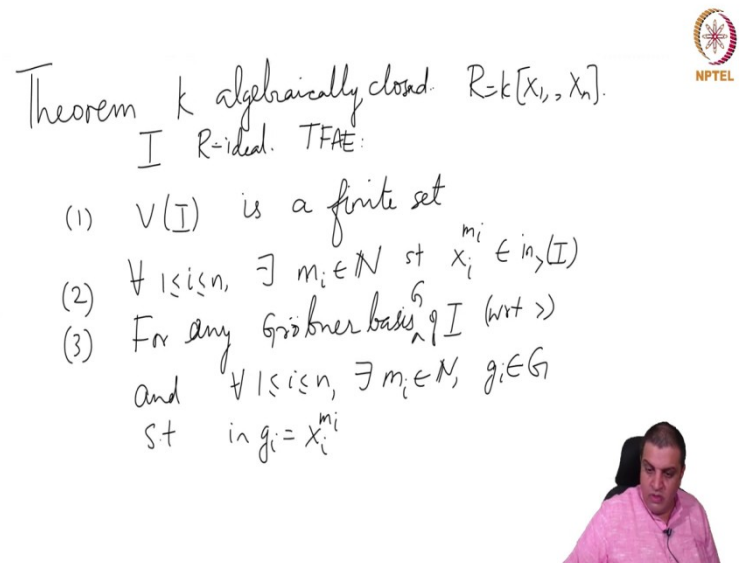 NPTEL
Theorem k algebraically closed. R=k[X₁, , Xₙ].
I R-ideal. TFAE:
(1) V(I) is a finite set
(2) ∀ 1≤i≤n, ∃ mᵢ ∈ ℕ st Xᵢ^{mᵢ} ∈ in_>(I)
(3) For any Gröbner basis ^G of I (wrt >)
and ∀ 1≤i≤n, ∃ mᵢ ∈ ℕ, gᵢ ∈ G
s.t in gᵢ = Xᵢ^{mᵢ}